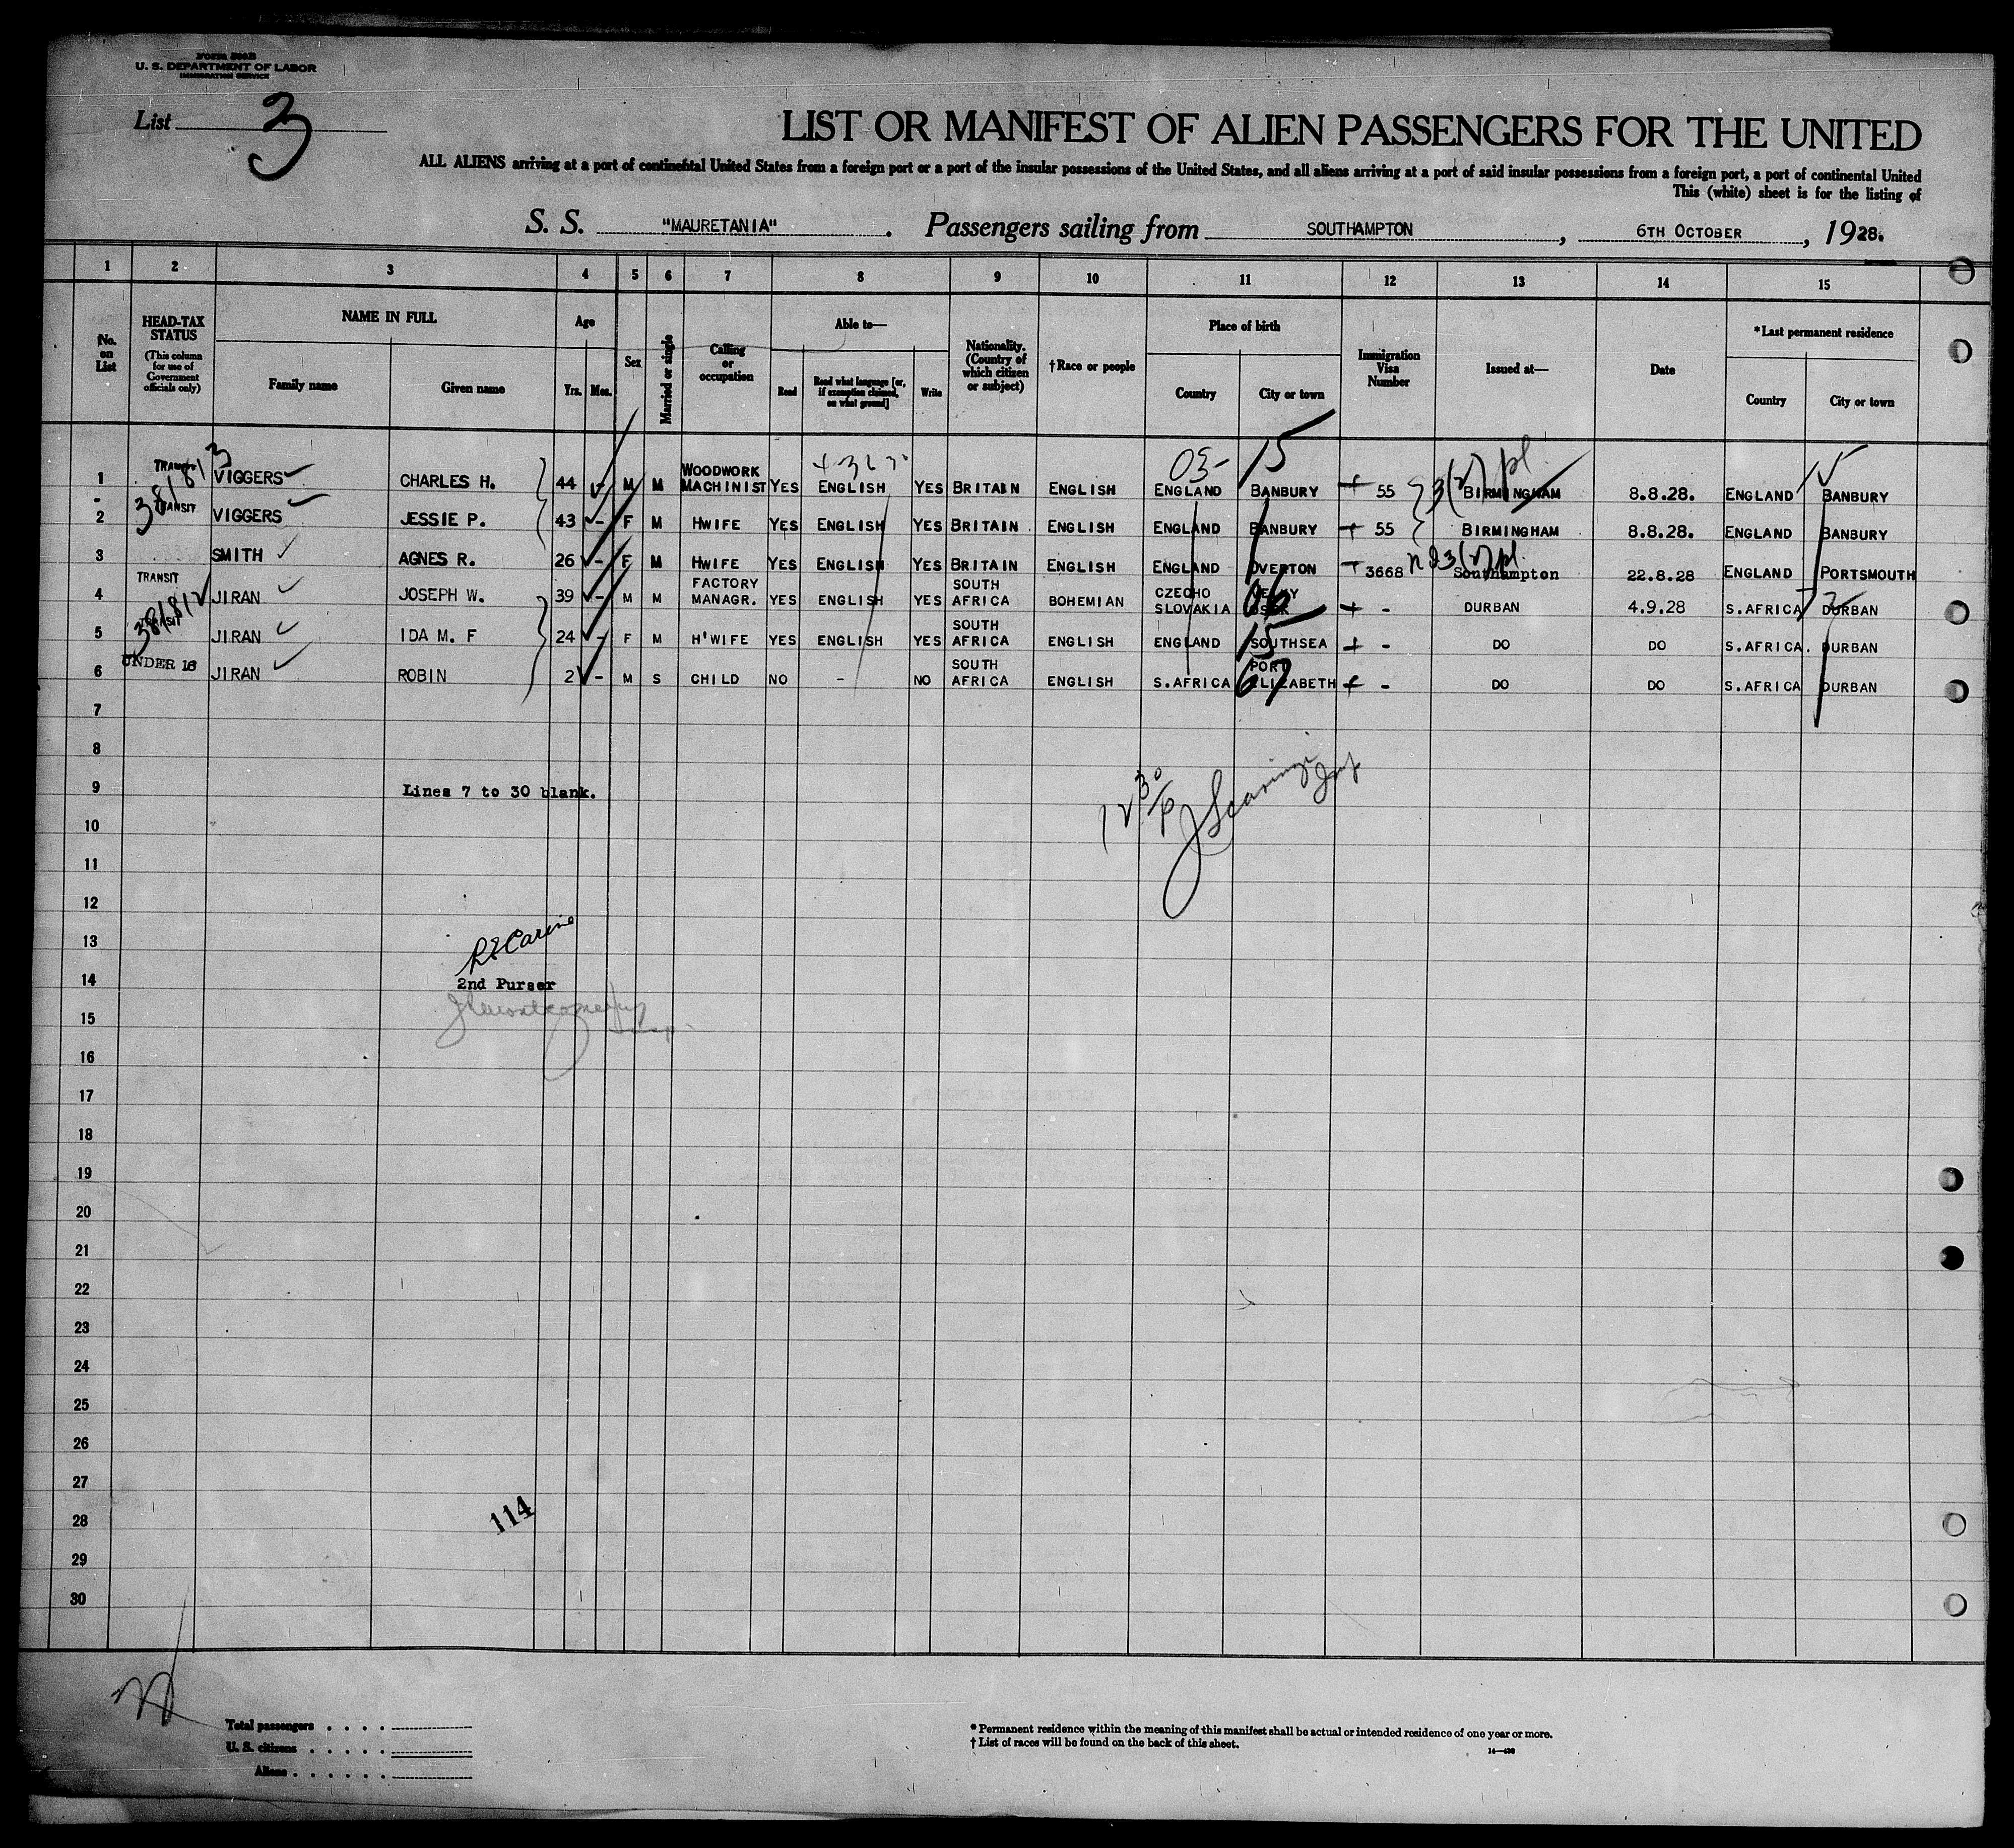 FORM 500B
U. S. DEPARTMENT OF LABOR
IMMIGRATION SERVICE
List 3
LIST OR MANIFEST OF ALIEN PASSENGERS FOR THE UNITED
ALL ALIENS arriving at a port of continental United States from a foreign port or a port of the insular possessions of the United States, and all aliens arriving at a port of said insular possessions from a foreign port, a port of continental United
This (white) sheet is for the listing of
S. S. "MAURETANIA". Passengers sailing from SOUTHAMPTON, 6TH OCTOBER, 1928.
1 2 3 4 5 6 7 8 9 10 11 12 13 14 15
No. on List
HEAD-TAX STATUS (This column for use of Government officials only)
NAME IN FULL
Family name Given name
Age
Yrs. Mos.
Sex
Married or single
Calling or occupation
Able to—
Read Read what language [or, if exemption claimed, on what ground] Write
Nationality. (Country of which citizen or subject)
†Race or people
Place of birth
Country City or town
Immigration Visa Number
Issued at—
Date
*Last permanent residence
Country City or town
05- 15
3(2) pl.
1 TRANSIT VIGGERS CHARLES H. 44 - M M WOODWORK MACHINIST YES ENGLISH YES BRITAIN ENGLISH ENGLAND BANBURY 55 BIRMINGHAM 8.8.28. ENGLAND BANBURY
381813
2 TRANSIT VIGGERS JESSIE P. 43 - F M HWIFE YES ENGLISH YES BRITAIN ENGLISH ENGLAND BANBURY 55 BIRMINGHAM 8.8.28. ENGLAND BANBURY
3 SMITH AGNES R. 26 - F M HWIFE YES ENGLISH YES BRITAIN ENGLISH ENGLAND OVERTON 3668 Southampton 22.8.28 ENGLAND PORTSMOUTH
4 TRANSIT JIRAN JOSEPH W. 39 - M M FACTORY MANAGR. YES ENGLISH YES SOUTH AFRICA BOHEMIAN CZECHO SLOVAKIA 06 - DURBAN 4.9.28 S.AFRICA DURBAN
381812
5 TRANSIT JIRAN IDA M. F 24 - F M H'WIFE YES ENGLISH YES SOUTH AFRICA ENGLISH ENGLAND SOUTHSEA 15 - DO DO S.AFRICA. DURBAN
6 UNDER 16 JIRAN ROBIN 2 - M S CHILD NO - NO SOUTH AFRICA ENGLISH S.AFRICA PORT ELIZABETH 67 - DO DO S.AFRICA DURBAN
7
8
9 Lines 7 to 30 blank.
10
11
12
13
14 2nd Purser
15
16
17
18
19
20
21
22
23
24
25
26
27
28 114
29
30
Total passengers . . . .
U. S. citizens . . . . .
Aliens . . . . . .
* Permanent residence within the meaning of this manifest shall be actual or intended residence of one year or more.
† List of races will be found on the back of this sheet.
14—430